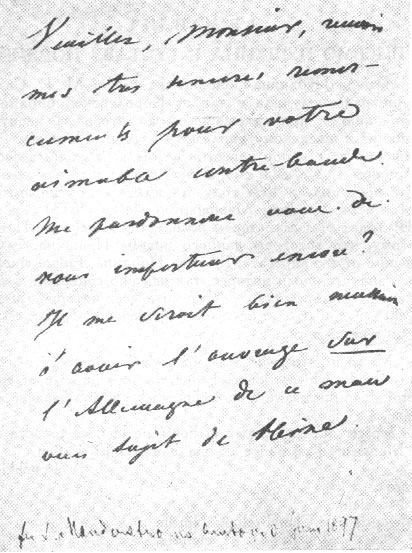 Veuillez, Monsieur, recevoir
mes très sincères remer-
ciments pour votre
aimable contre-bande.
Me pardonnerez vous de
vous importuner encore?
Il me seroit bien
d'avoir l'ouvrage sur
l'Allemagne de ce mau
vais sujet de Heine.
1897